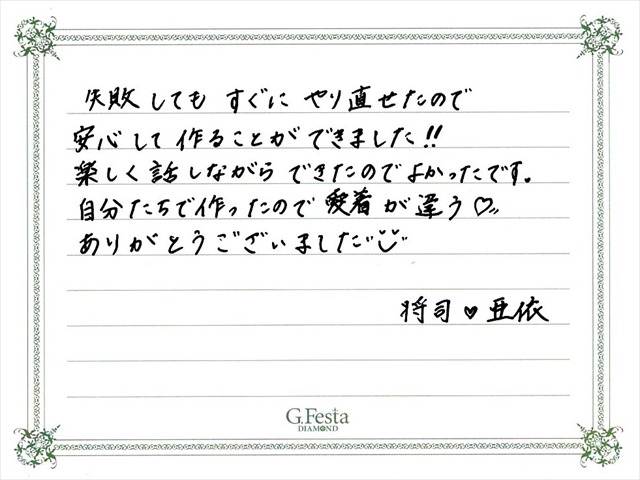 失敗しても すぐに やり直せたので
安心して 作ることが できました!!
楽しく 話しながら できたので よかったです。
自分たちで 作ったので 愛着 が 違う♡
ありがとうございました
将司 ♥ 亜依
G.Festa
DIAMOND